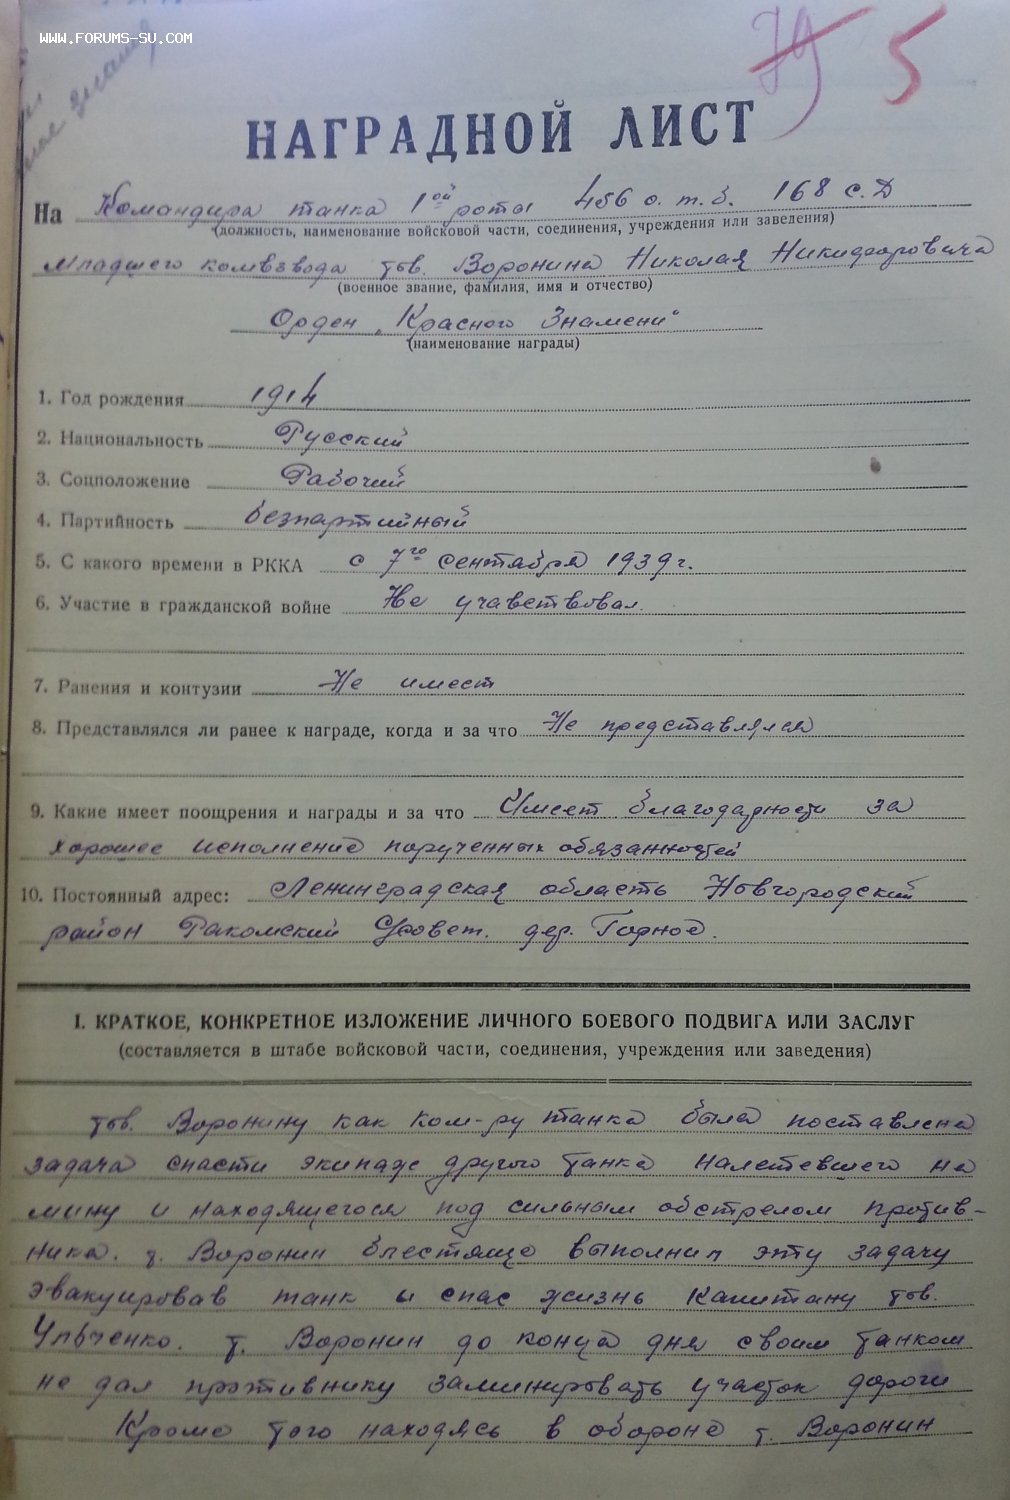 WWW.FORUMS-SU.COM
79 5
НАГРАДНОЙ ЛИСТ
На Командира танка 1ой роты 456 о.т.б. 168 с.Д
(должность, наименование войсковой части, соединения, учреждения или заведения)
младшего комвзвода тов. Воронина Николая Никифоровича
(военное звание, фамилия, имя и отчество)
Орден „Красного Знамени"
(наименование награды)
1. Год рождения 1914
2. Национальность Русский
3. Соцположение Рабочий
4. Партийность безпартийный
5. С какого времени в РККА с 7го сентября 1939 г.
6. Участие в гражданской войне Не учавствовал.
7. Ранения и контузии Не имеет
8. Представлялся ли ранее к награде, когда и за что Не представлялся
9. Какие имеет поощрения и награды и за что Имеет благодарности за
хорошее исполнение порученных обязанностей
10. Постоянный адрес: Ленинградская область Новгородский
район Ракомский С/совет. дер. Горное.
I. КРАТКОЕ, КОНКРЕТНОЕ ИЗЛОЖЕНИЕ ЛИЧНОГО БОЕВОГО ПОДВИГА ИЛИ ЗАСЛУГ
(составляется в штабе войсковой части, соединения, учреждения или заведения)
тов. Воронину как ком-ру танка была поставлена
задача спасти экипаж другого танка налетевшего на
мину и находящегося под сильным обстрелом против-
ника. т. Воронин блестяще выполнил эту задачу
эвакуировав танк и спас жизнь Капитану тов.
Ульченко. т. Воронин до конца дня своим танком
не дал противнику заминировать участок дороги
Кроме того находясь в обороне т. Воронин